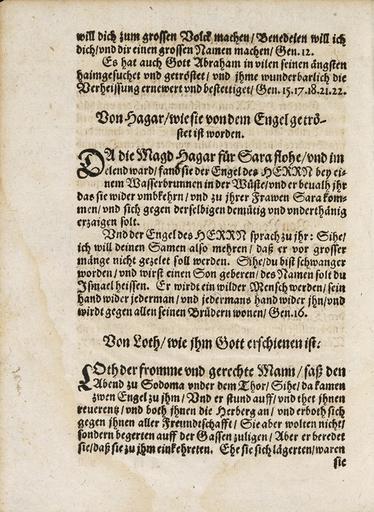 will dich zum grossen Volck machen/ Benedeien will ich
dich/vnd dir einen grossen Namen machen/ Gen. 12.
Es hat auch Gott Abraham in vilen seinen ängsten
haimgesuchet vnd getröstet/ vnd jhme wunderbarlich die
Verheissung ernewert vnd bestettiget/ Gen. 15.17.18.21.22.
Von Hagar/wie sie von dem Engel getrö-
stet ist worden.
DA die Magd Hagar für Sara flohe/vnd im
elend ward/fand sie der Engel des HERRN bey ei-
nem Wasserbrunnen in der Wüste/vnd er beualh jhr
das sie wider vmbkehrn/vnd zu jhrer Frawen Sara kom-
men/vnd sich gegen derselbigen demütig vnd vnderthänig
erzaigen solt.
Vnd der Engel des HERRN sprach zu jhr: Sihe/
ich will deinen Samen also mehren/ daß er vor grosser
mänge nicht gezelet soll werden. Sihe/du bist schwanger
worden/vnd wirst einen Son geberen/des Namen solt du
Ismael heissen. Er wirdt ein wilder Mensch werden/sein
hand wider jederman/vnd jedermans hand wider jhn/vnd
wirdt gegen allen seinen Brüdern wonen/ Gen.16.
Von Loth/wie jhm Gott erschienen ist:
LOth der fromme vnd gerechte Mann/ saß den
Abend zu Sodoma vnder dem Thor/Sihe/da kamen
zwen Engel zu jhm/ Vnd er stund auff/vnd thet jhnen
reuerentz/vnd both jhnen die Herberg an/ vnd erboth sich
gegen jhnen aller Freundtschafft/ Sie aber wolten nicht/
sondern begerten auff der Gassen zuligen/ Aber er beredet
sie/daß sie zu jhm einkehreten. Ehe sie sich lägerten/waren
sie